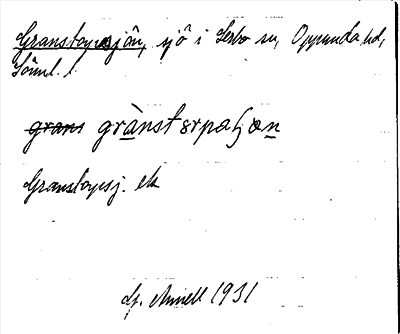 Granstorpasjön, sjö i Lerbo sn, Oppunda hd,
Söml.
grans grànstɜrpaɧøn
Granstorpsj. ek
Af. Annell 1931